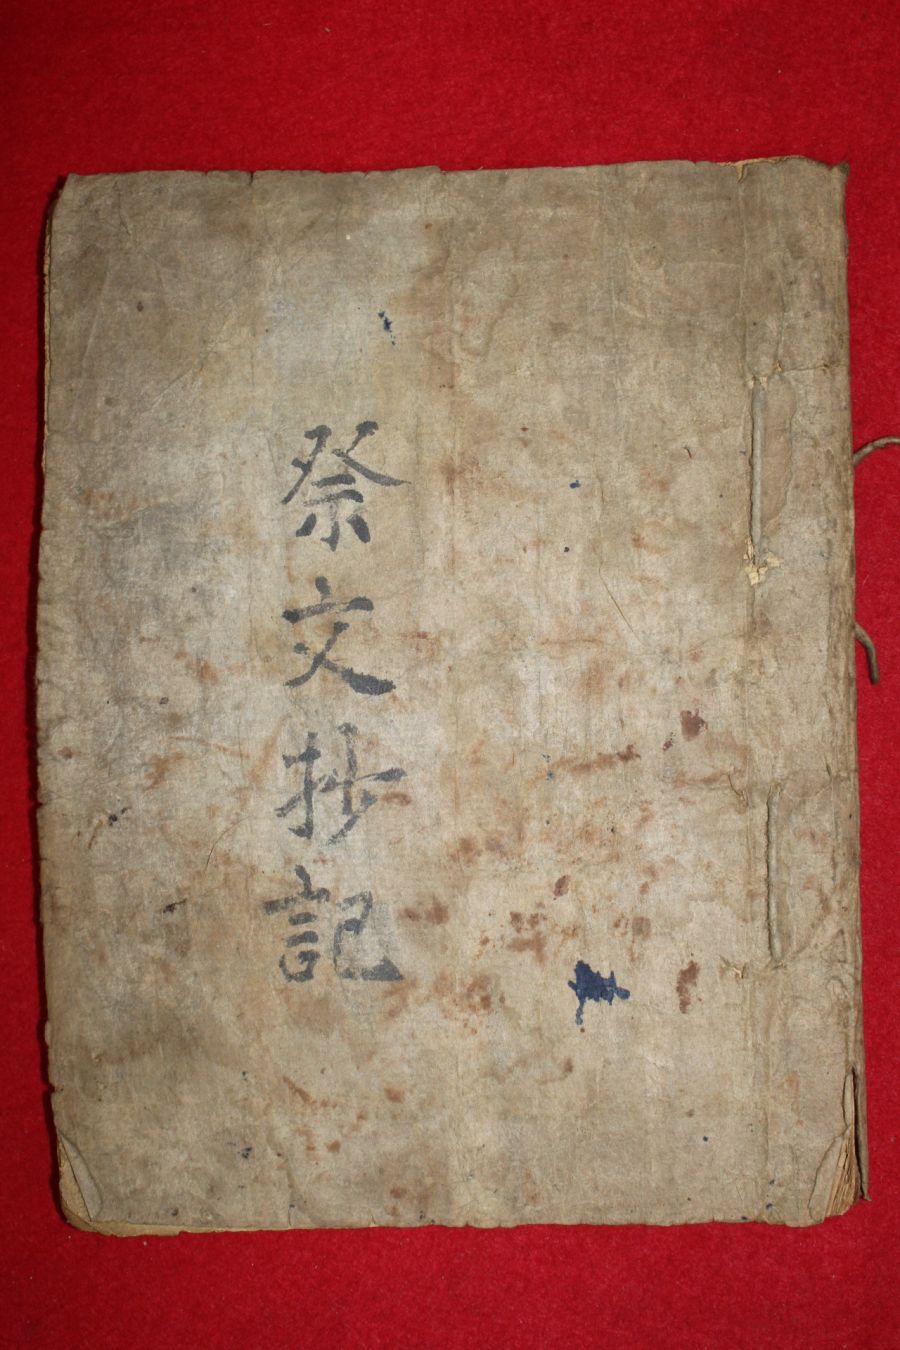 祭文抄記